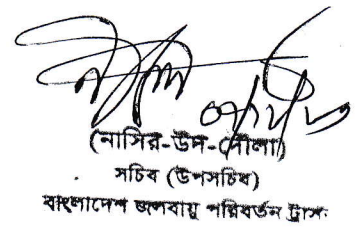 (নাসির-উদ-দৌলা)
সচিব (উপসচিব)
বাংলাদেশ জলবায়ু পরিবর্তন ট্রাস্ট